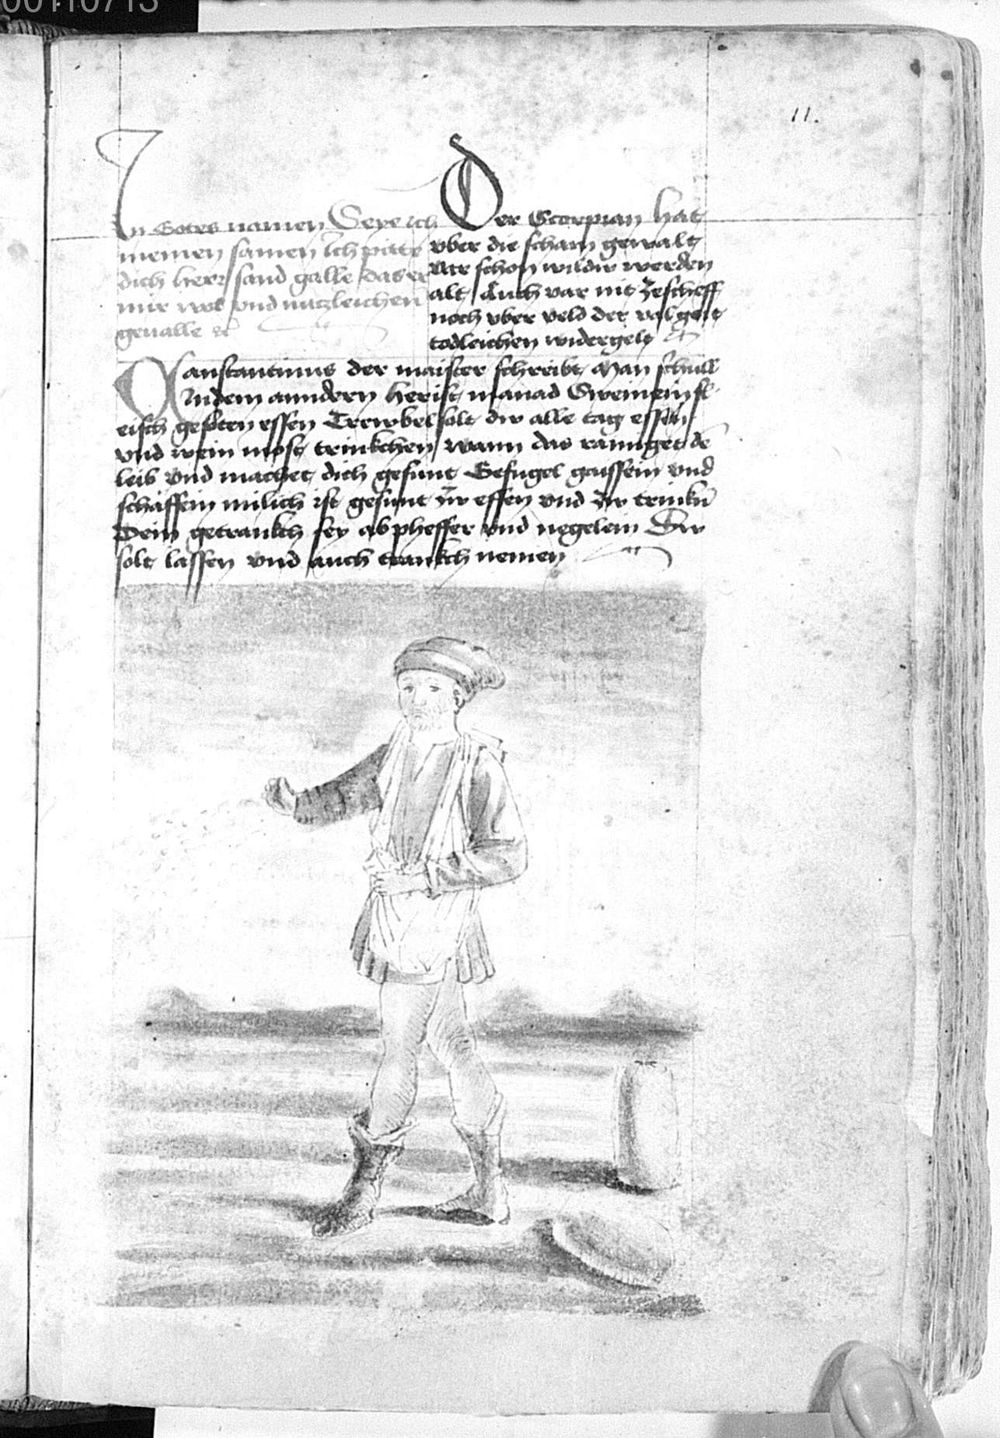 00110713
11.
In Gotes namen Seye ich
meinen samen Ich pitte
dich herr sand galle das er
mir wol vnd nutzleichen
geualle etc
Der Scorpian hat
vber die scham gewalt
var schon wildu werden
alt Auch var nit ze scheff
noch vber veld der val geit
todleichen widergelt etc
Constantinus der maister schreibt Man schull
In dem anndern herist manad Sweinein fl-
eisch gesoten essen Trewbel solt dw alle tag essen
vnd wein most trinkchen wann das rainiget de
leib vnd machet dich gesunt Gefugel gaissein vnd
schäffein milich ist gesunt zw essen vnd zw trinkn
Dein getrankch sey ab pheffer vnd negelein Dw
solt lassen vnd auch trankch nemen